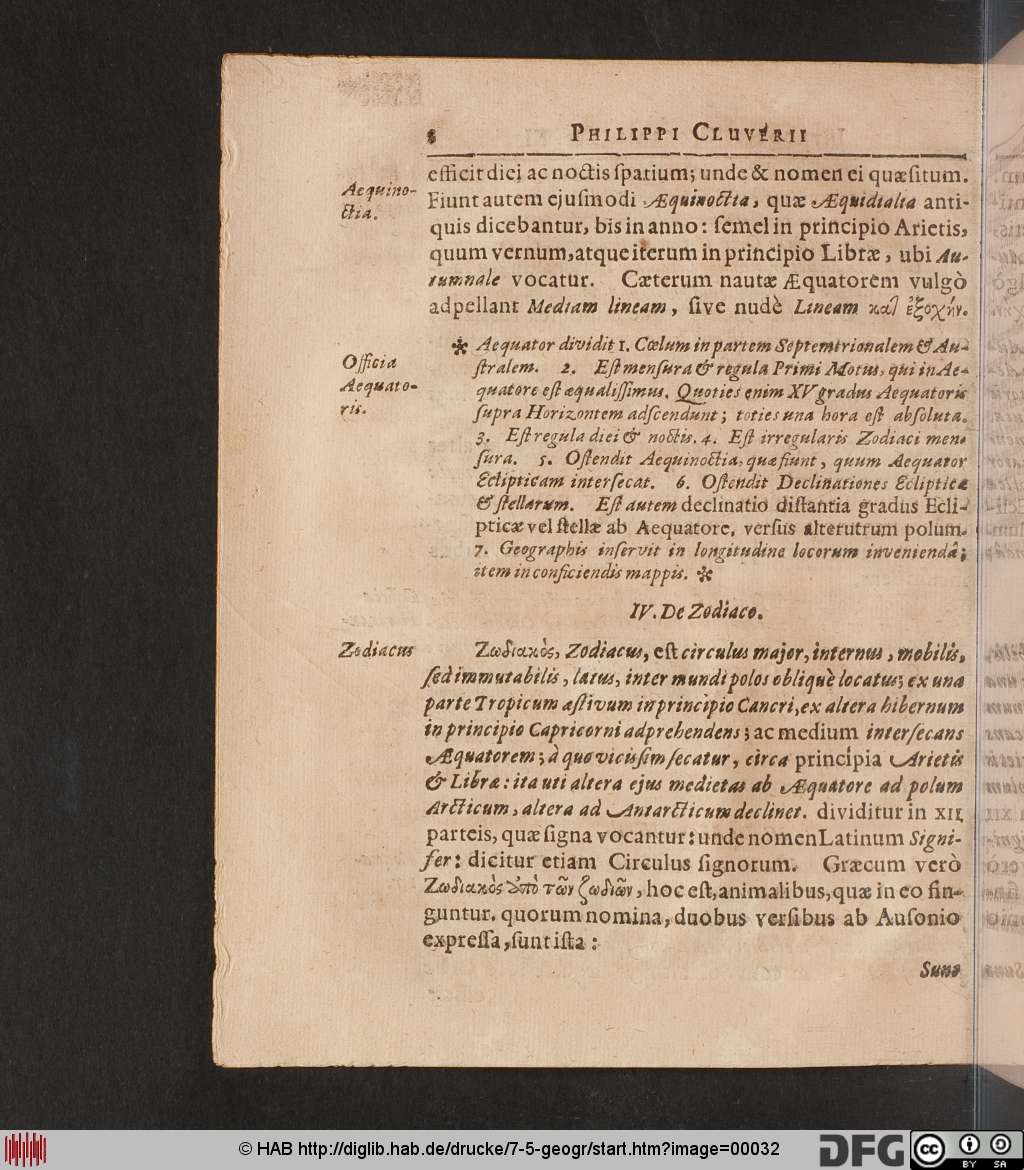 8 PHILIPPI CLUVERII
efficit diei ac noctis ſpatium; unde & nomen ei quæſitum.
Aequino-
ctia.
Fiunt autem ejuſmodi Æquinoctia, quæ Æquidialia anti-
quis dicebantur, bis in anno: ſemel in principio Arietis,
quum vernum, atque iterum in principio Libræ, ubi Au-
tumnale vocatur. Cæterum nautæ Æquatorem vulgò
adpellant Mediam lineam, ſive nudè Lineam κατ ἐξοχήν.
Officia
Aequato-
ris.
✻ Aequator dividit 1. Cœlum in partem Septemtrionalem & Au-
ſtralem. 2. Eſt menſura & regula Primi Motus, qui in Ae-
quatore eſt æqualiſſimus. Quoties enim XV gradus Aequatoris
ſupra Horizontem adſcendunt; toties una hora eſt abſoluta.
3. Eſt regula diei & noctis. 4. Eſt irregularis Zodiaci men-
ſura. 5. Oſtendit Aequinoctia, quæ fiunt, quum Aequator
Eclipticam interſecat. 6. Oſtendit Declinationes Eclipticæ
& ſtellarum. Eſt autem declinatio diſtantia gradus Ecli-
pticæ vel ſtellæ ab Aequatore, verſus alterutrum polum.
7. Geographis inſervit in longitudine locorum inveniendâ;
item in conficiendis mappis. ✻
IV. De Zodiaco.
Zodiacus
Ζωδιακὸς, Zodiacus, eſt circulus major, internus, mobilis,
ſed immutabilis, latus, inter mundi polos obliquè locatus; ex una
parte Tropicum æſtivum in principio Cancri, ex altera hibernum
in principio Capricorni adprehendens; ac medium interſecans
Æquatorem; à quo viciſſim ſecatur, circa principia Arietis
& Libræ: ita uti altera ejus medietas ab Æquatore ad polum
Arcticum, altera ad Antarcticum declinet. dividitur in XII
parteis, quæ ſigna vocantur: unde nomen Latinum Signi-
fer: dicitur etiam Circulus ſignorum. Græcum verò
Ζωδιακὸς ἀπὸ τῶν ζωδιῶν, hoc eſt, animalibus, quæ in eo fin-
guntur. quorum nomina, duobus verſibus ab Auſonio
expreſſa, ſunt iſta:
Sunt
© HAB http://diglib.hab.de/drucke/7-5-geogr/start.htm?image=00032
DFG
cc BY SA